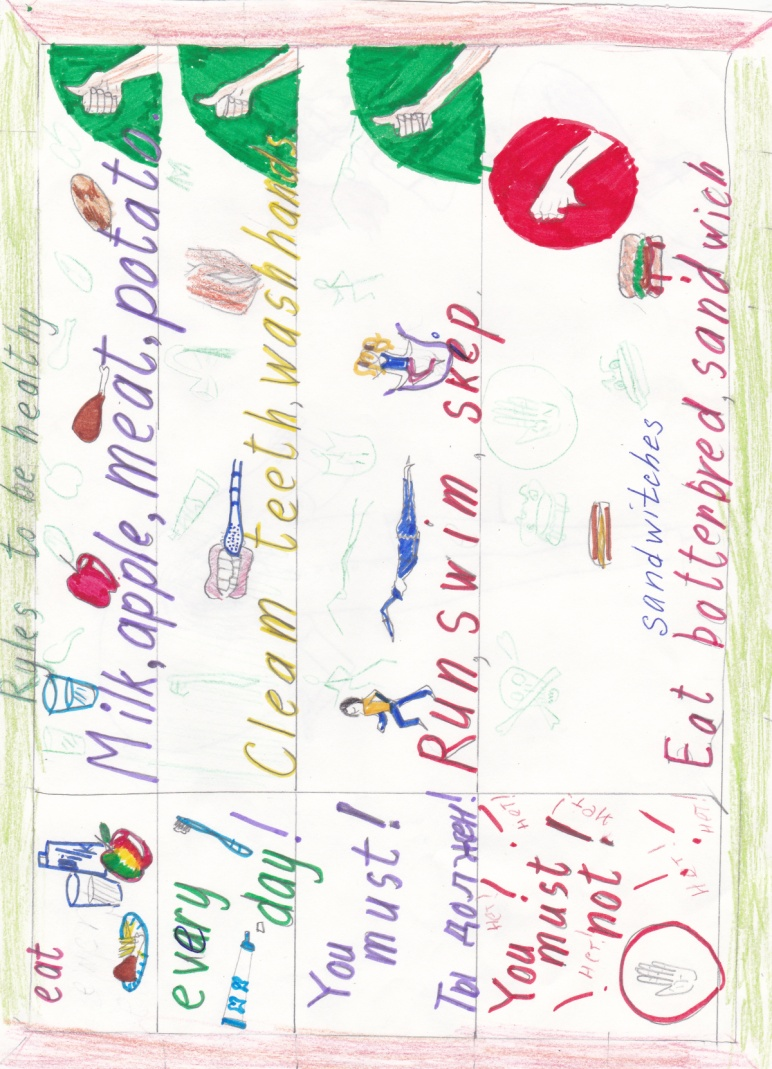 Ryles to be healthy
eat
Milk, apple, meat, potato.
every
day!
Cleam teeth, wash hands.
You
must!
Ты должен!
Run, swim, skep
You
must
not!
Нет!
Нет!
Нет!
Нет!
Нет!
Нет!
sandwitches
Eat botterbred, sandwich